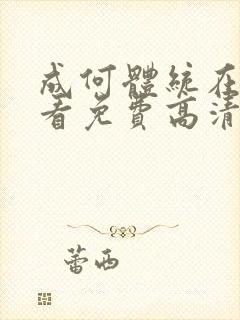 成何體統在
看免費高清
蕾西